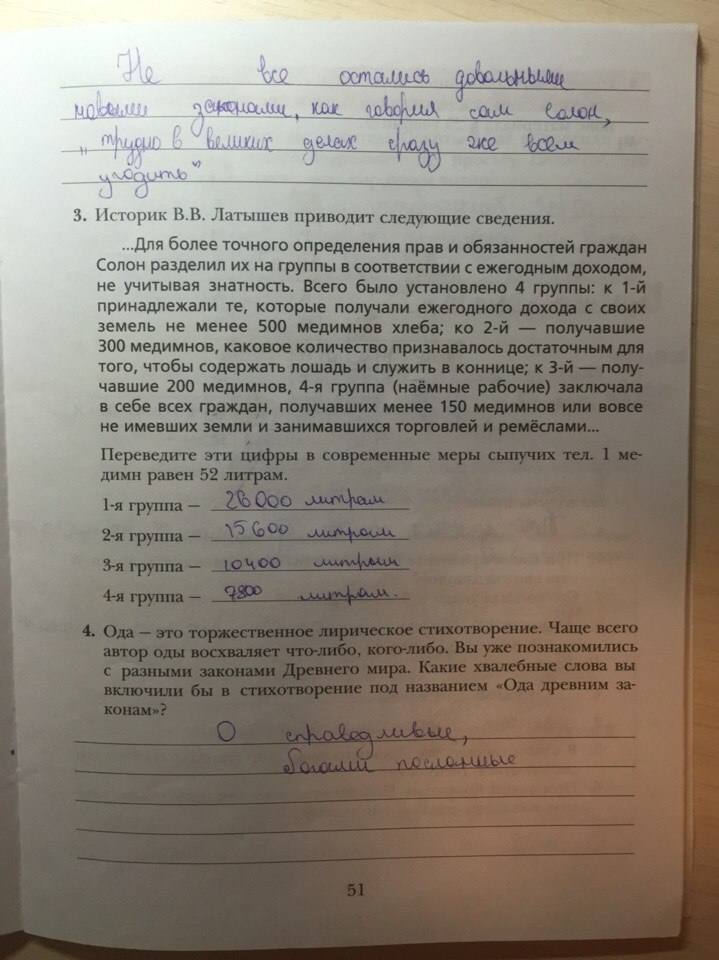 Не все остались довольными
новыми законами, как говорил сам Солон,
„трудно в великих делах сразу же всем
угодить"
3. Историк В.В. Латышев приводит следующие сведения.
...Для более точного определения прав и обязанностей граждан
Солон разделил их на группы в соответствии с ежегодным доходом,
не учитывая знатность. Всего было установлено 4 группы: к 1-й
принадлежали те, которые получали ежегодного дохода с своих
земель не менее 500 медимнов хлеба; ко 2-й — получавшие
300 медимнов, каковое количество признавалось достаточным для
того, чтобы содержать лошадь и служить в коннице; к 3-й — полу-
чавшие 200 медимнов, 4-я группа (наёмные рабочие) заключала
в себе всех граждан, получавших менее 150 медимнов или вовсе
не имевших земли и занимавшихся торговлей и ремёслами...
Переведите эти цифры в современные меры сыпучих тел. 1 ме-
димн равен 52 литрам.
1-я группа — 26000 литрам
2-я группа — 15600 литрам
3-я группа — 10400 литрам
4-я группа — 7800 литрам.
4. Ода — это торжественное лирическое стихотворение. Чаще всего
автор оды восхваляет что-либо, кого-либо. Вы уже познакомились
с разными законами Древнего мира. Какие хвалебные слова вы
включили бы в стихотворение под названием «Ода древним за-
конам»?
О справедливые,
богами посланные
51